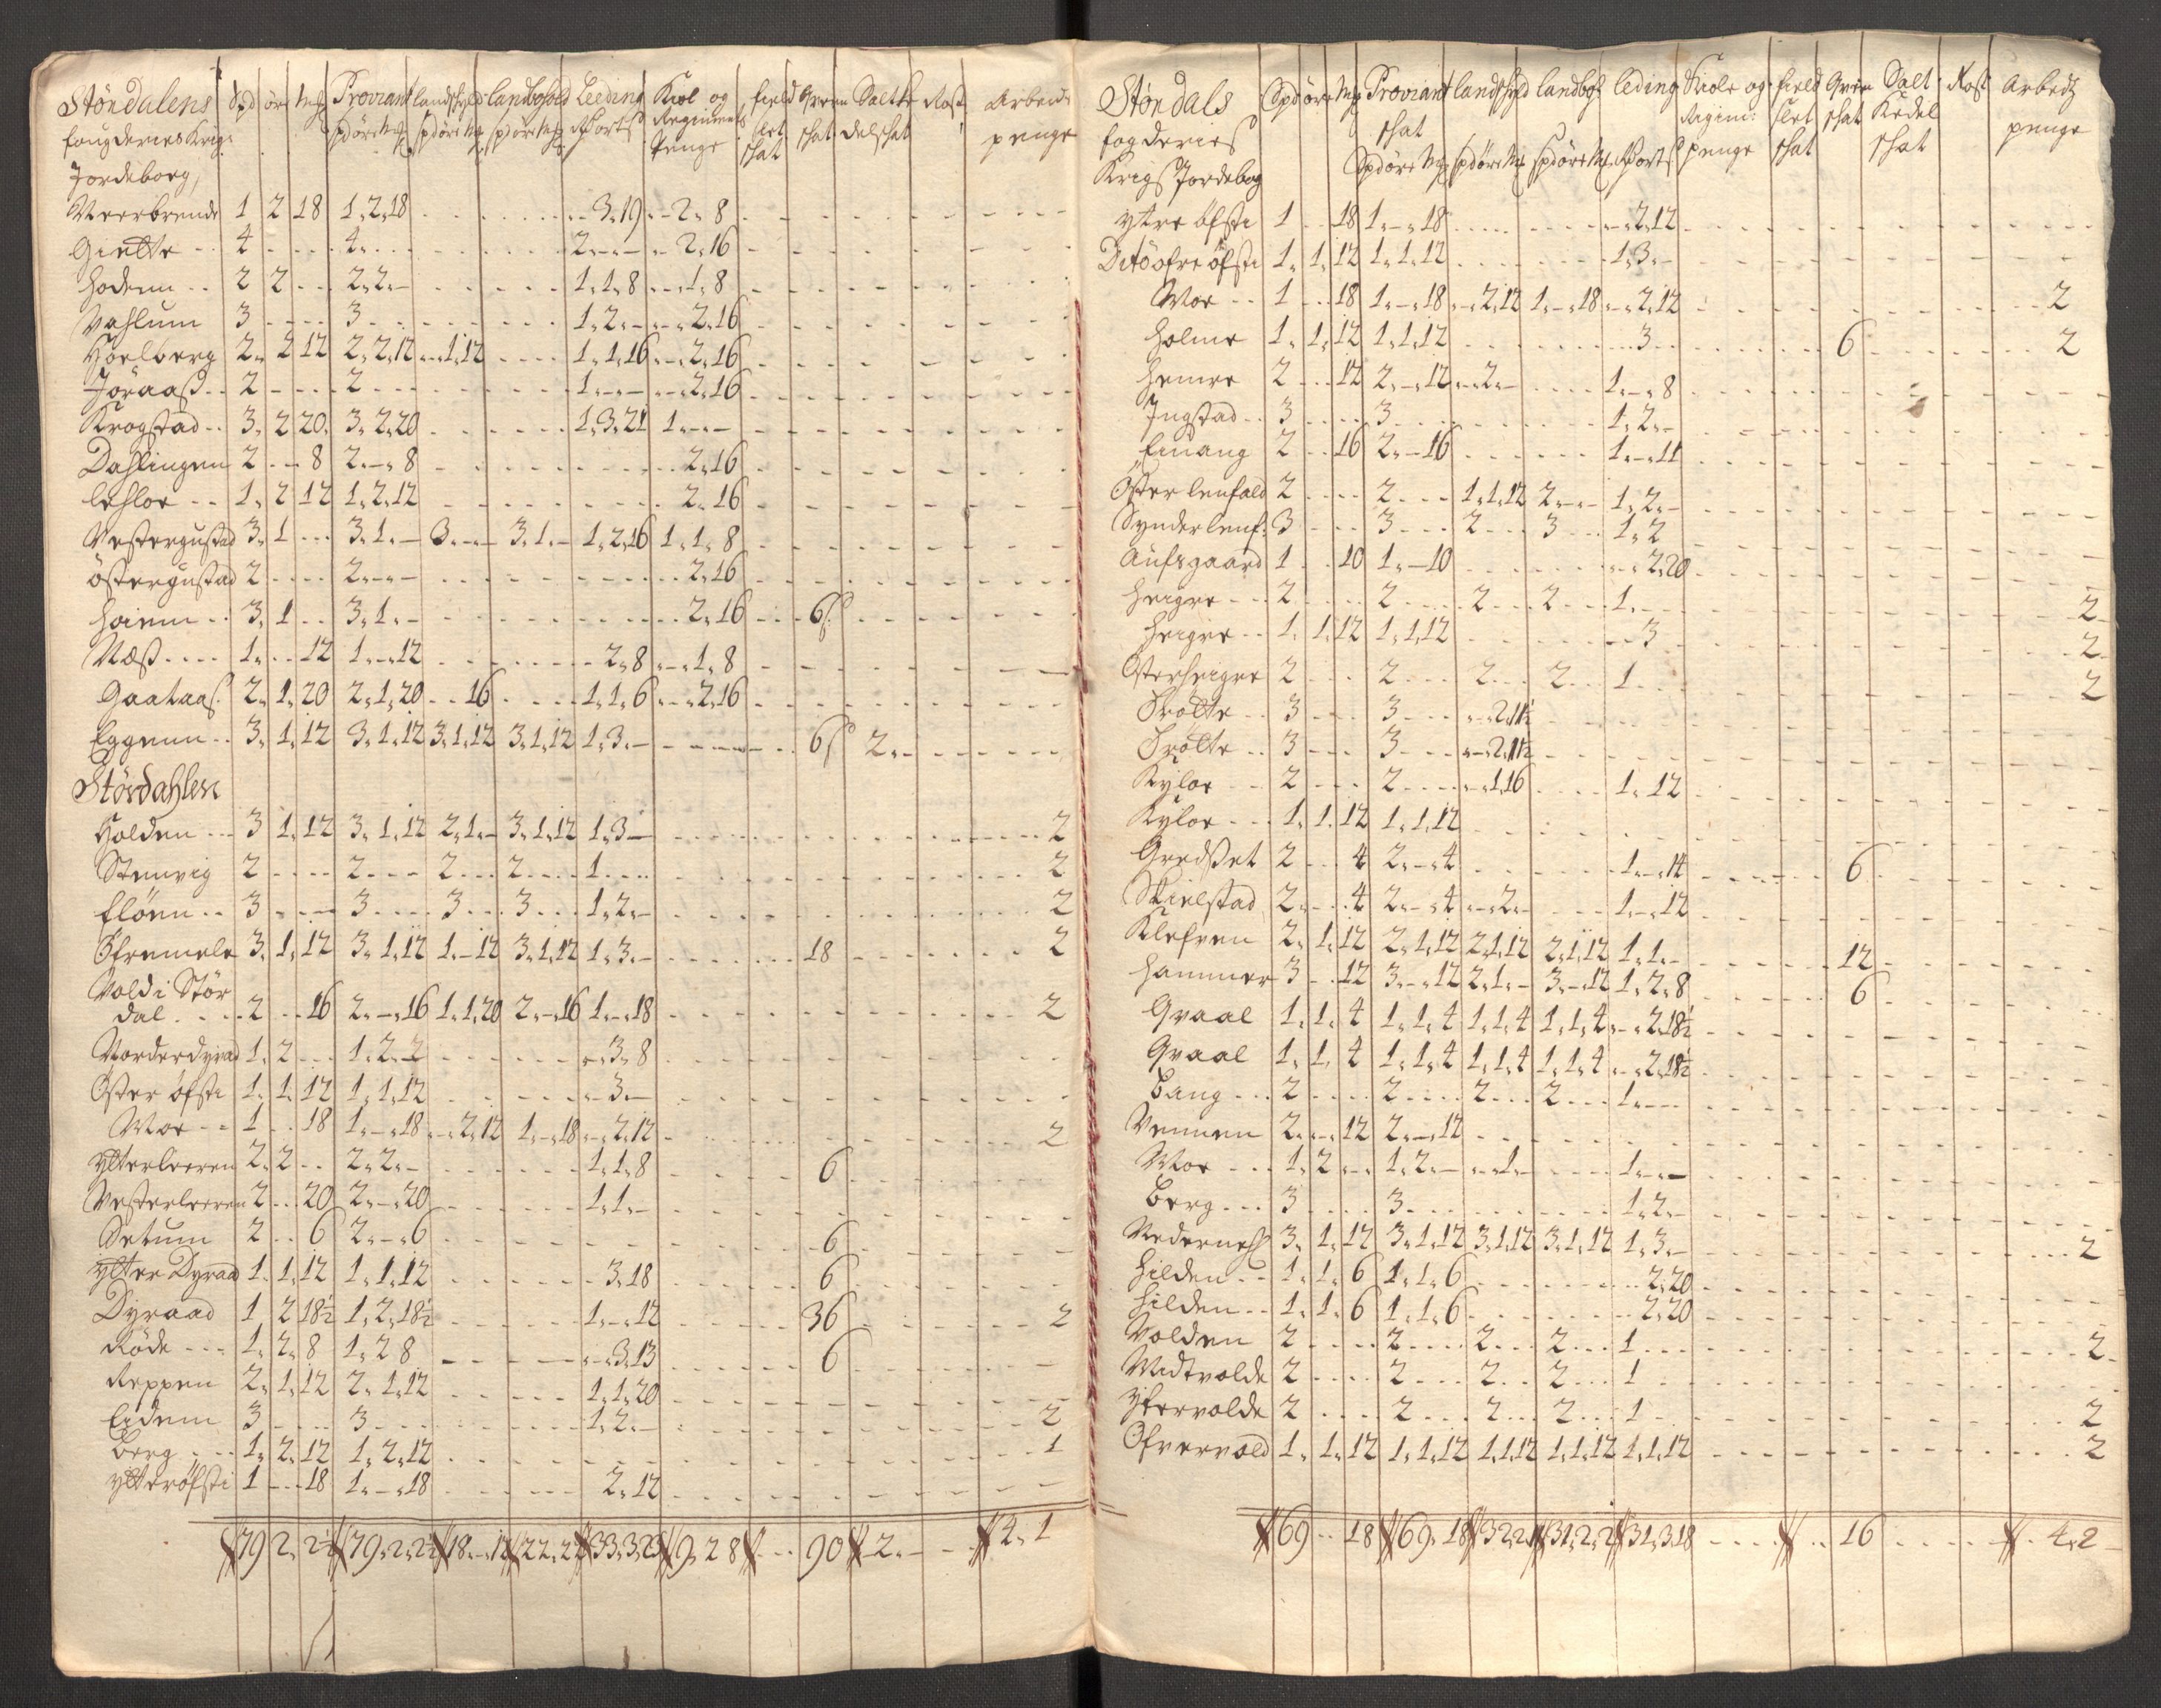 Stördalens Spd öre Mg Proviant landschyld landbohold Leeding Kiol og field Qvern Saltke Rost Arbeids
fougderies Krigs spd öre Mg spd öre Mg spd öre Mg Rorts Regiments slet schat delschat penge
Jordeborg, Penge schat
Meerbrende 1 2 18 1.2.18 - - - 3.19 - 2.8
Giette 4 - - 4. - - 2. - - - 2.16
Hodem 2 2 - 2.2. - 1.1.8 - 1.8
Vahlum 3 - - 3 - - 1.2. - - 2.16
Hoelberg 2. 2 12 2.2.12 - 1.12 - 1.1.16 - 2.16
Jöraas 2 - - 2 - - 1. - - - 2.16
Krogstad 3. 2 20. 3.2.20 - - 1.3.21 1. - -
Dahlingen 2 - 8 2. - 8 - - - 2.16
lehlor 1. 2 12 1.2.12 - - - 2.16
Vestergustad 3. 1 - 3.1. - 3. - - 3.1. - 1.2.16 1.1.8
Östergustad 2 - - 2. - - - - - 2.16
Hoiem 3. 1 - 3.1. - - - - 2.16 - 6 s.
Næss 1. - 12 1. - 12 - - 2.8 - 1.8
Gaataas 2. 1. 20 2.1.20 - 16 - 1.1.6 - 2.16
Eggenn 3. 1. 12 3.1.12 3.1.12 3.1.12 1.3. - - - 6 s 2. -
Stördahlen
Holden 3 1. 12 3.1.12 2.1. - 3.1.12 1.3 - - - 2
Stenvig 2 - - 2 - - 2 - 2 - - 1 - - - 2
flöen 3 - - 3 - - 3 - 3 - - 1.2. - - 2
Öfremele 3. 1. 12 3.1.12 1. - 12 3.1.12 1.3. - - 18 - 2
Vold i Stör
dal 2 - 16 2. - 16 1.1.20 2. - 16 1. - 18 - 2
Norderdyrad 1. 2 - 1.2. 2 - - - 3.8
Öster öfsti 1. 1. 12 1.1.12 - - - 3. -
Moe 1 - 18 1. - 18 - 2.12 1. - 18 - 2.12 - 2
Ytterleeren 2. 2 - 2.2. - - - 1.1.8 - 6
Vesterleeren 2 - 20 2. - 20 - - 1.1. -
Setum 2 - 6 2. - 6 - - - 6
Ytter Dyraad 1. 1. 12 1.1.12 - - 3.18 - 6
Dyraad 1 2 18½ 1.2.18½ - - 1. - 12 - 36 - 2
Röde 1. 2. 8 1.2 8 - - - 3.13 - 6 -
Reppen 2. 1. 12 2.1.12 - - 1.1.20
Eidem 3 - - 3 - - 1.2. - - 2
Berg 1. 2. 12 1.2.12 - - - 1
Ytteröfsti 1 - 18 1. - 18 - - 2.12
79 2. 2½ 79.2.2½ 18. - 12 22. 33.3.23 9. 2 8 - 90 2. - 4. 1
Stördals Spd öre Mg Proviant landschyld landbohl leding Kiole og field Qvern Salt Rost Arbedz
fogderies schat Regim: slet schat Kedel penge
Krigs Jordebog Spd öre Mg spd öre Mg spd öre Mg Rorts penge schat schat
Ytre öfsti 1 - 18 1. - 18 - - - 2.12
Ditö öfre öfsti 1. 1. 12 1.1.12 - - 1.3. -
Moe 1 - 18 1. - 18 - 2.12 1. - 18 - 2.12 - 2
Holme 1. 1. 12 1.1.12 - - - 3 - 6 - 2
Hemre 2 - 12 2. - 12 - 2. - - 1. - 8
Ingstad 3 - - 3 - - 1.2. -
Einang 2 - 16 2. - 16 - - 1. - 11
Öster lenfald 2 - - 2 - - 1.1.12 2. - - 1.2. -
Synderlenf: 3 - - 3 - - 2 - 3 - - 1.2
Aufsgaard 1 - 10 1. - 10 - - - 2.20
Heigre 2 - - 2 - - 2 - - 2 - - 1. - - 2
Heigre 1. 1. 12 1.1.12 - - - 3 - 2
Österheigre 2 - - 2 - - 2 - - 2 - - 1 - - 2
Trötte 3 - - 3 - - - 2.11½
Trötte 3 - - 3 - - - 2.11½
Kylor 2 - - 2 - - - 1.16 - 1. 12
Kylor 1. 1. 12 1.1.12
Gredset 2 - 4 2. - 4 - - 1. - 14 - 6
Skielstad 2. - 4 2. - 4 - 2. - - 1. - 12
Klefven 2. 1. 12 2.1.12 2.1.12 2.1.12 1.1. - - 12
Hammer 3 - 12 3. - 12 2.1. - 3. - 12 1.2.8 - 6
Qvaal 1. 1. 4 1.1.4 1.1.4 1.1.4 - 2.18½
Qvaal 1. 1. 4 1.1.4 1.1.4 1.1.4 - 2.18½
Bang 2 - - 2 - - 2 - - 2 - - 1. - -
Vennen 2. - 12 2. - 12
Moe 1. 2 - 1.2. - - 1. - - 1. - -
Berg 3 - - 3 - - 1.2. -
Mederness 3. 1. 12 3.1.12 3.1.12 3.1.12 1.3. - - 2
Hilden 1. 1. 6 1.1.6 - - - 2.20
Hilden 1. 1. 6 1.1.6 - - - 2.20
Volden 2 - - 2 - - 2 - - 2 - - 1 - - 2
Midtvolde 2 - - 2 - - 2 - - 2 - - 1
Ytervolde 2 - - 2 - - 2 - - 2 - - 1 - - 2
Öfvervold 1. 1. 12 1.1.12 1.1.12 1.1.12 1.1.12 - 2
69 - 18 69. 18 32.2. 31.2.2 31.3.18 - - 16 - - 4.2